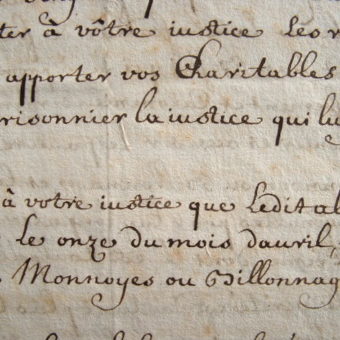 ter à vôtre justice les r
apporter vos Charitables
risonnier la justice qui lu
à votre justice que ledit al
le onze du mois dauril,
Monnoyes ou Billonnag